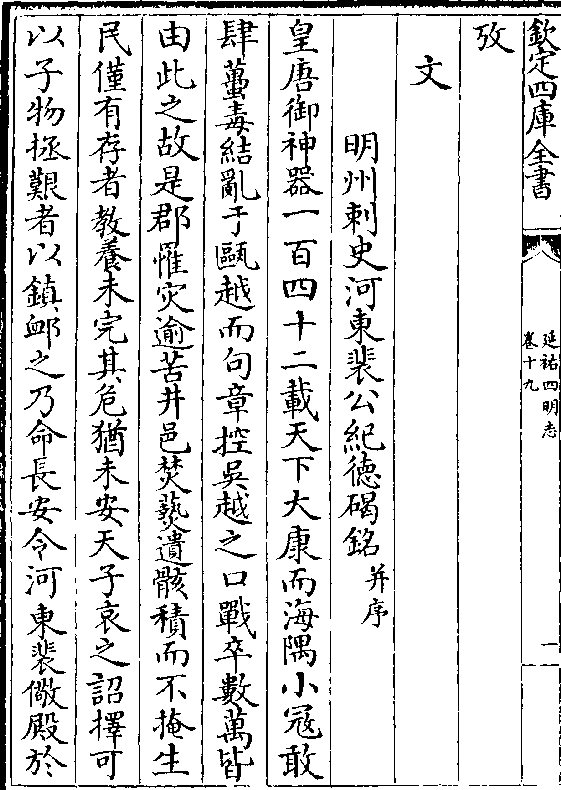 欽定四庫全書
延祐四明志
卷十九
一
攷
文
明州刺史河東裴公紀德碣銘并序
皇唐御神器一百四十二載天下大康而海隅小冦敢
肆蠆毒結亂于甌越而句章控吳越之口戰卒數萬皆
由此之故是郡惟灾逾苦井邑焚爇遺骸積而不掩生
民僅有存者教養未完其危猶未安天子哀之詔擇可
以子物拯艱者以鎮䘏之乃命長安令河東裴儆殿於